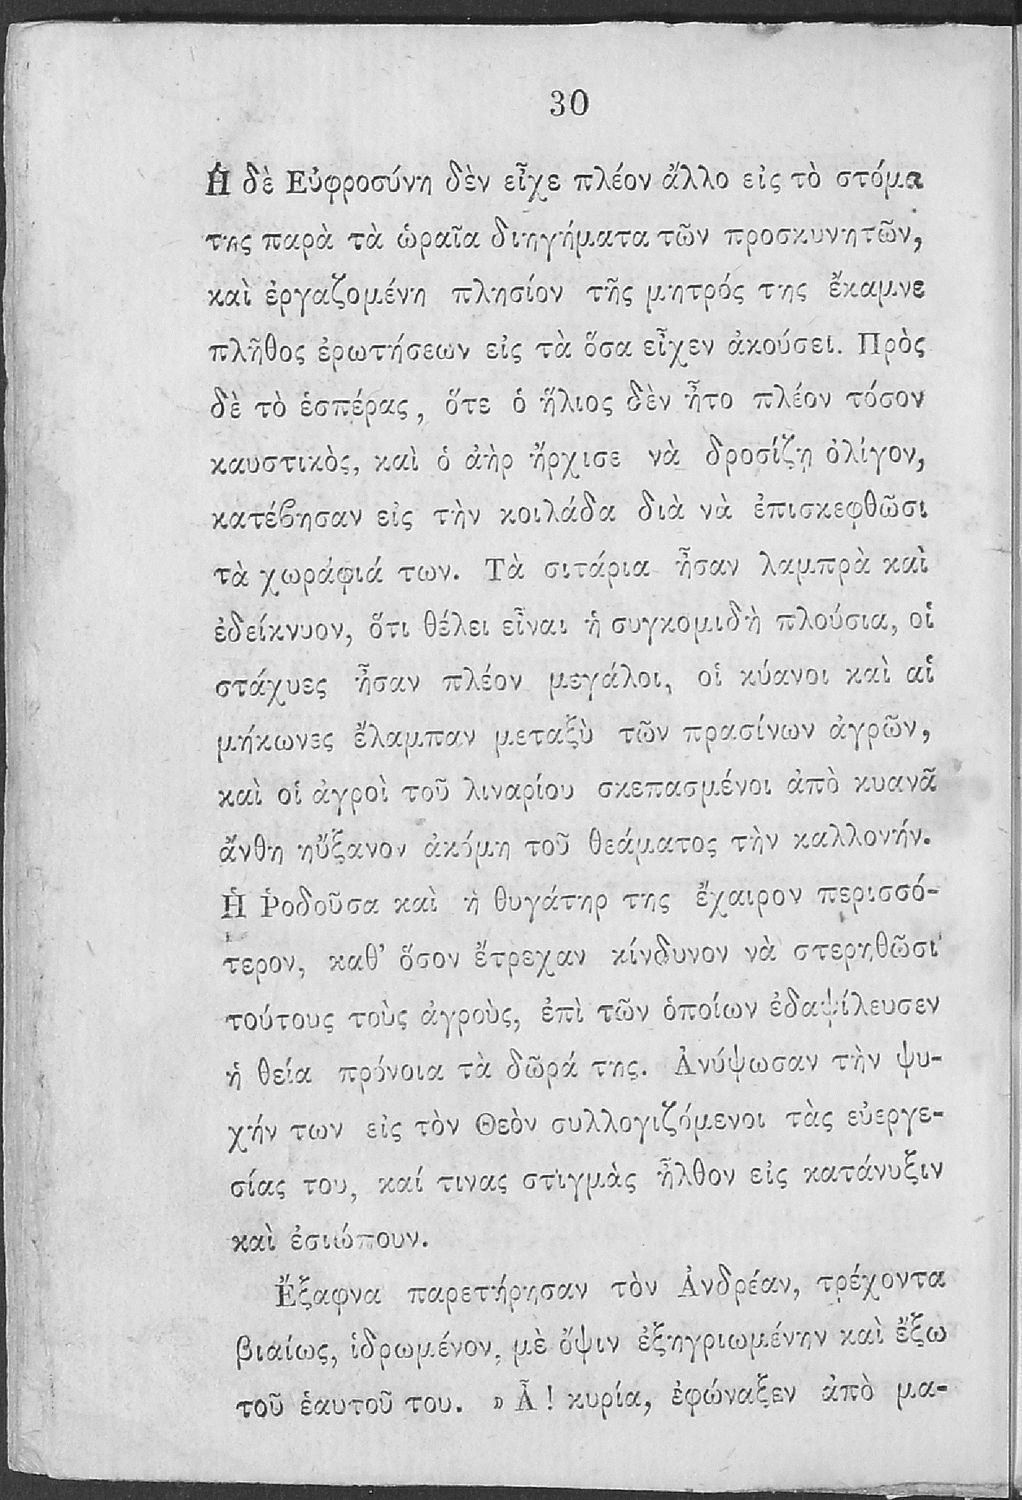 30
Ἡ δὲ Εὐφροσύνη δὲν εἶχε πλέον ἄλλο εἰς τὸ στόμα
της παρὰ τὰ ὡραῖα διηγήματα τῶν προσκυνητῶν,
καὶ ἐργαζομένη πλησίον τῆς μητρός της ἔκαμνε
πλῆθος ἐρωτήσεων εἰς τὰ ὅσα εἶχεν ἀκούσει. Πρὸς
δὲ τὸ ἑσπέρας, ὅτε ὁ ἥλιος δὲν ἦτο πλέον τόσον
καυστικὸς, καὶ ὁ ἀὴρ ἤρχισε νὰ δροσίζῃ ὀλίγον,
κατέβησαν εἰς τὴν κοιλάδα διὰ νὰ ἐπισκεφθῶσι
τὰ χωράφιά των. Τὰ σιτάρια ἦσαν λαμπρὰ καὶ
ἐδείκνυον, ὅτι θέλει εἶναι ἡ συγκομιδὴ πλούσια, οἱ
στάχυες ἦσαν πλέον μεγάλοι, οἱ κύανοι καὶ αἱ
μήκωνες ἔλαμπαν μεταξὺ τῶν πρασίνων ἀγρῶν,
καὶ οἱ ἀγροὶ τοῦ λιναρίου σκεπασμένοι ἀπὸ κυανᾶ
ἄνθη ηὔξανον ἀκόμη τοῦ θεάματος τὴν καλλονήν.
Ἡ Ῥοδοῦσα καὶ ἡ θυγάτηρ της ἔχαιρον περισσό-
τερον, καθ’ ὅσον ἔτρεχαν κίνδυνον νὰ στερηθῶσι
τούτους τοὺς ἀγροὺς, ἐπὶ τῶν ὁποίων ἐδαψίλευσεν
ἡ θεία πρόνοια τὰ δῶρά της. Ἀνύψωσαν τὴν ψυ-
χήν των εἰς τὸν Θεὸν συλλογιζόμενοι τὰς εὐεργε-
σίας του, καί τινας στιγμὰς ἦλθον εἰς κατάνυξιν
καὶ ἐσιώπουν.
Ἔξαφνα παρετήρησαν τὸν Ἀνδρέαν, τρέχοντα
βιαίως, ἱδρωμένον, μὲ ὄψιν ἐξηγριωμένην καὶ ἔξω
τοῦ ἑαυτοῦ του. » Ἆ! κυρία, ἐφώναξεν ἀπὸ μα-